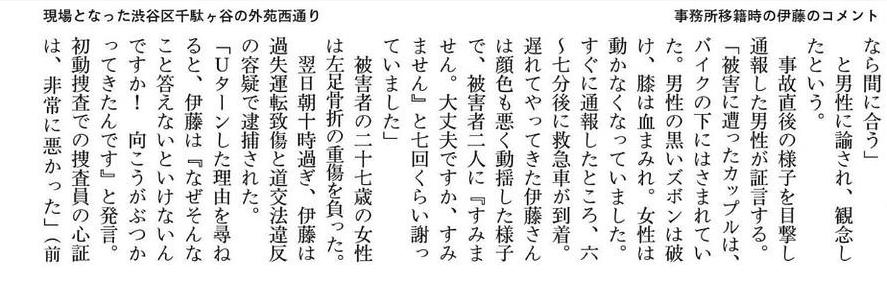 現場となった渋谷区千駄ヶ谷の外苑西通り
事務所移籍時の伊藤のコメント
なら間に合う」
　と男性に諭され、観念し
たという。
　事故直後の様子を目撃し
通報した男性が証言する。
「被害に遭ったカップルは、
バイクの下にはさまれてい
た。男性の黒いズボンは破
け、膝は血まみれ。女性は
動かなくなっていました。
すぐに通報したところ、六
〜七分後に救急車が到着。
遅れてやってきた伊藤さん
は顔色も悪く動揺した様子
で、被害者二人に『すみま
せん。大丈夫ですか、すみ
ません』と七回くらい謝っ
ていました」
　被害者の二十七歳の女性
は左足骨折の重傷を負った。
　翌日朝十時過ぎ、伊藤は
過失運転致傷と道交法違反
の容疑で逮捕された。
「Uターンした理由を尋ね
ると、伊藤は『なぜそんな
こと答えないといけないん
ですか！　向こうがぶつか
ってきたんです』と発言。
初動捜査での捜査員の心証
は、非常に悪かった」（前